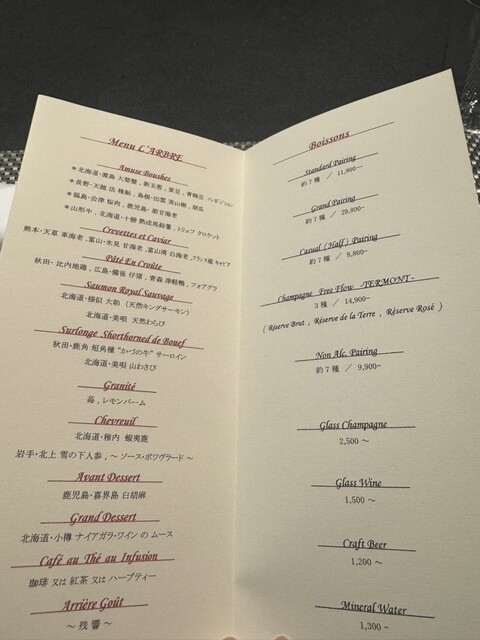 Menu L'ARBRE
Amuse Boushes
＊北海道・渡島 大墊蟹 , 新玉葱 , 蚕豆 , 青豌豆
＊長野・天龍 活 稚鮎 , 島根・出雲 実山椒 , 胡瓜
＊福島・会津 桜肉 , 鹿児島・ 甘海老
＊山形牛 , 北海道・十勝 熟成馬鈴薯 , トリュフ クロケット
Crevettes et Caviar
熊本・天草 車海老 , 富山・氷見 甘海老 , 富山湾 白海老 , フランス産 キャビア
Pâté En Croûte
秋田・比内地鶏 , 広島・備後 仔猪 , 青森 津軽鴨 , フォアグラ
Saumon Royal Sauvage
北海道・様似 大助 （天然キングサーモン）
北海道・美唄 天然わらび
Surlonge Shorthorned de Bouef
秋田・鹿角 短角種 "かづの牛" サーロイン
北海道・美唄 山わさび
Granité
苺 , レモンバーム
Chevreuil
北海道・稚内 蝦夷鹿
岩手・北上 雪の下人参 , ～ ソース・ポワヴラード ～
Avant Dessert
鹿児島・喜界島 白胡麻
Grand Dessert
北海道・小樽 ナイアガラ・ワイン の ムース
Café au Thé au Infusion
珈琲 又は 紅茶 又は ハーブティー
Arrière Goût
～ 残 響 ～
Boissons
Standard Pairing
約７種 ／ 11,900～
Grand Pairing
約７種 ／ 29,800～
Casual ( Half ) Pairing
約７種 ／ 8,800～
Champagne Free Flow -TERMONT-
3 種 ／ 14,900～
( Réserve Brut , Réserve de la Terre , Réserve Rosé )
Non Alc. Pairing
約７種 ／ 9,900～
Glass Champagne
2,500 ～
Glass Wine
1,500 ～
Craft Beer
1,200 ～
Mineral Water
1,300 ～